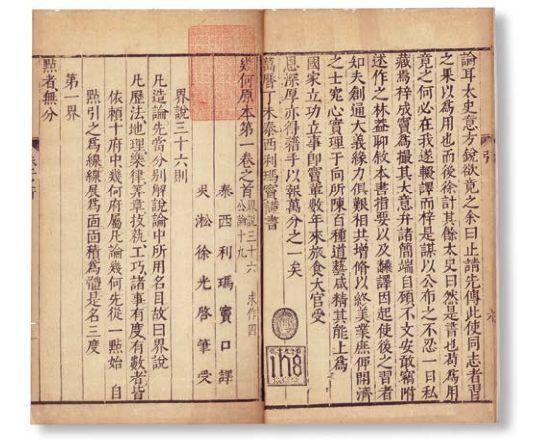 論耳太史意方銳欲竟之余曰止請先傳此使同志者習
之果以爲用也而後徐計其餘太史曰然是書也苟爲用
竟之何必在我遂輟譯而梓是謀以公布之不忍一日私
藏焉梓成竇爲撮其大意弁諸簡端自顧不文安敢竊附
述作之林蓋聊敘本書指要以及翻譯因起使後之習者
知夫創通大義緣力俱艱相共增修以終美業庶俾開濟
之士究心實理于向所陳百種道藝咸精其能上爲
國家立功立事即竇輩數年來旅食大官受
恩深厚亦得藉手以報萬分之一矣
萬曆丁未泰西利瑪竇謹書
IHS
引
幾何原本第一卷之首 界說三十六 公論十九 求作四
泰西利瑪竇口譯
吳淞徐光啓筆受
界說三十六則
凡造論先當分別解說論中所用名目故曰界說
凡歷法地理樂律筭章技執工巧諸事有度有數者皆
依賴十府中幾何府屬凡論幾何先從一點始自
點引之爲線線展爲面面積爲體是名三度
第一界
點者無分